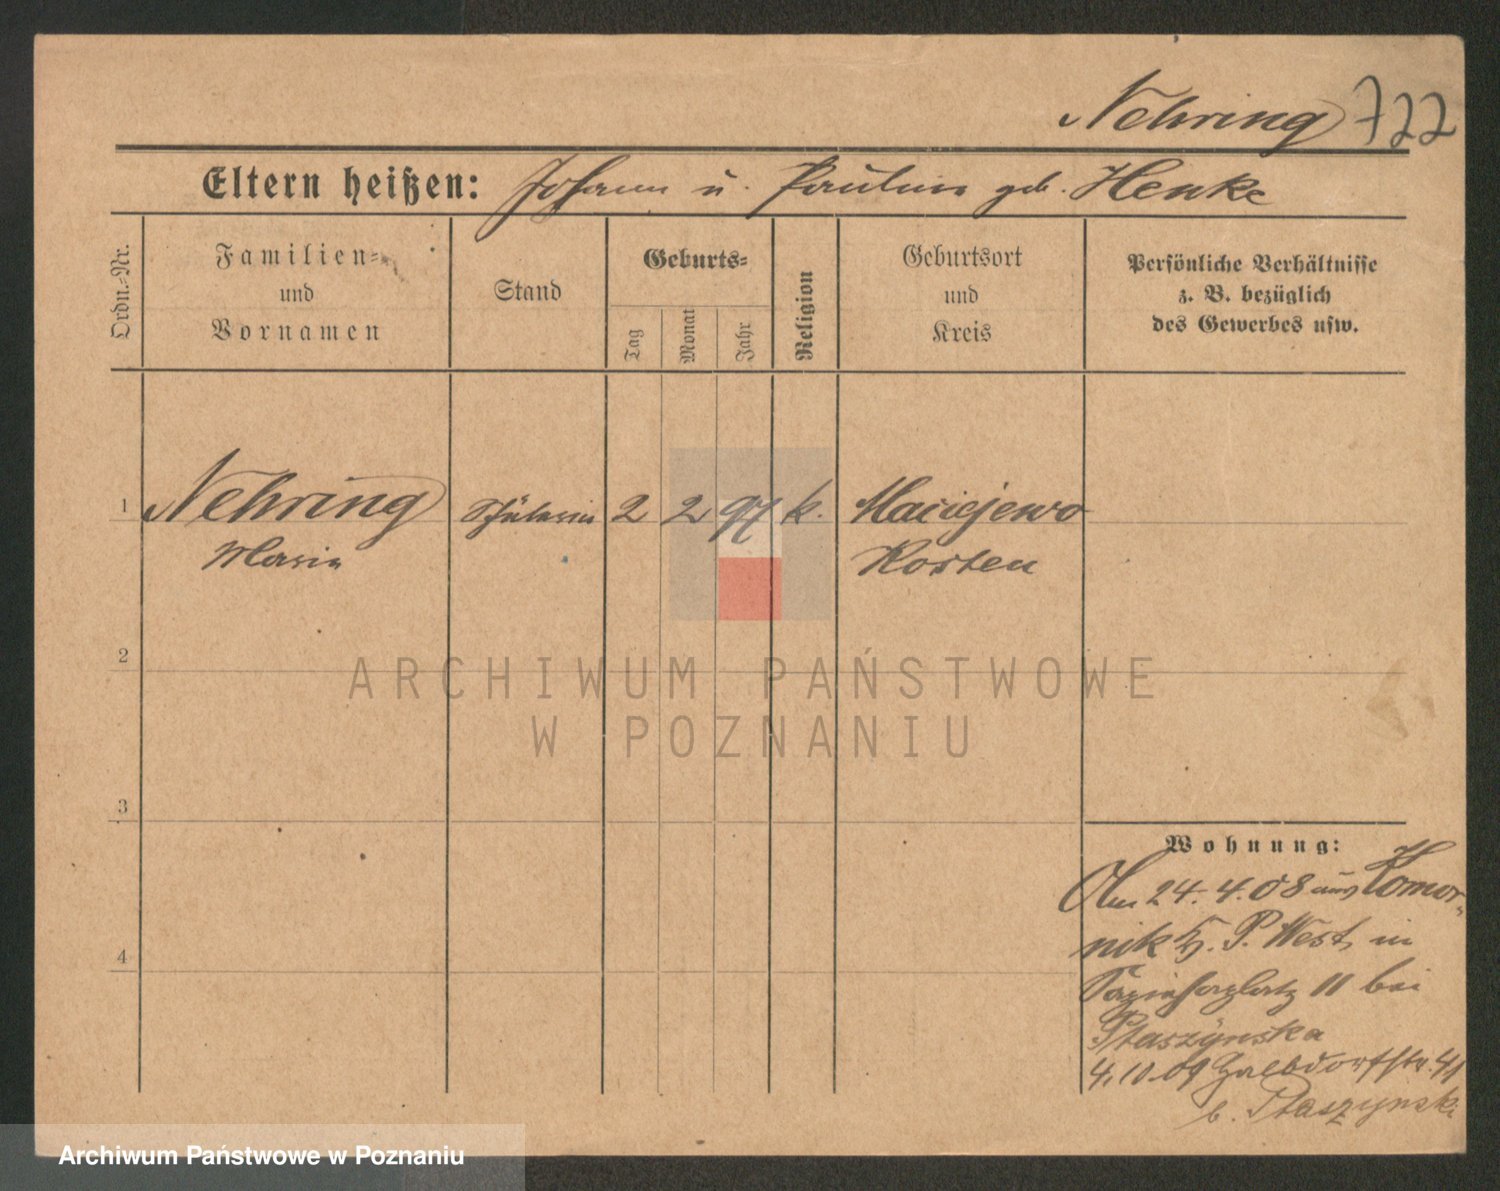 Nehring 722
Eltern heißen: Johann u. Paulina geb. Henke
Ordn.-Nr.
Familien-
und
Vornamen
Stand
Geburts-
Tag
Monat
Jahr
Religion
Geburtsort
und
Kreis
Persönliche Verhältnisse
z. B. bezüglich
des Gewerbes usw.
1 Nehring Schülerin 2 2 97 k. Maciejewo
Maria Kosten
2
ARCHIWUM PAŃSTWOWE
W POZNANIU
3
4
Wohnung:
Am 24. 4. 08 aus Komor-
nik Kr. P. West, in
11 bei
Ptaszynska
4. 10. 09 Halbdorfstr. 41
b. Ptaszynski
Archiwum Państwowe w Poznaniu